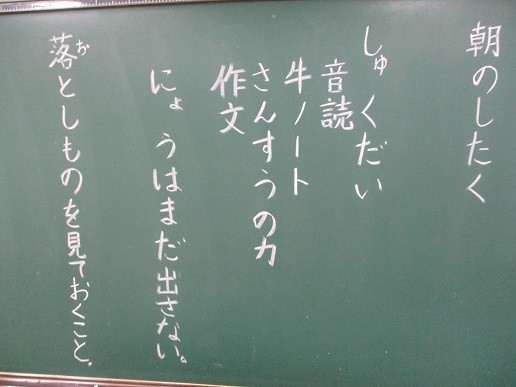 朝のしたく
しゅくだい
音読
牛ノート
さんすうの力
作文
にょうはまだ出さない。
落としものを見ておくこと.
お